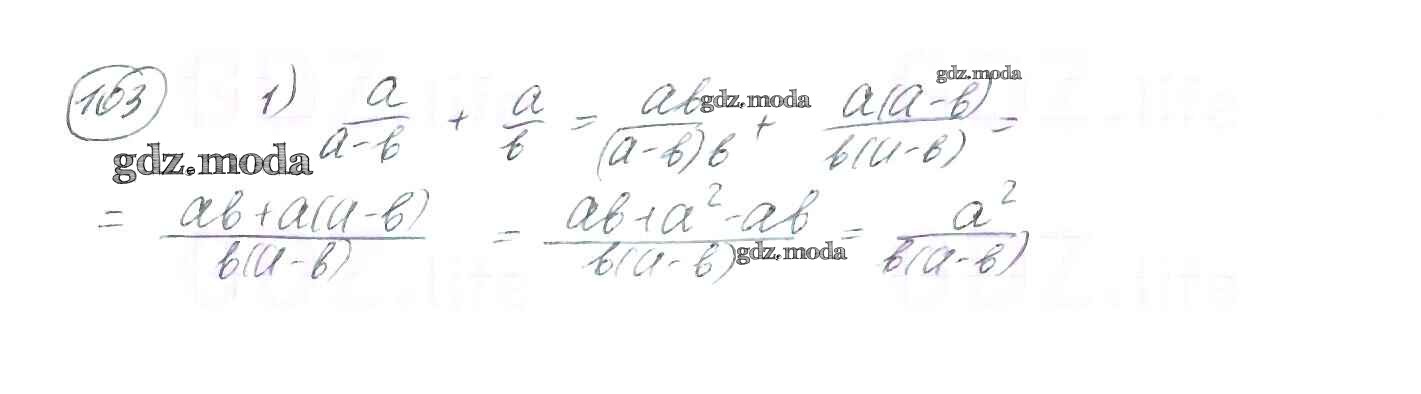 163 1) a/(a-в) + a/в = aв/((a-в)в) + a(a-в)/(в(a-в)) =
= (aв+a(a-в))/(в(a-в)) = (aв+a²-aв)/(в(a-в)) = a²/(в(a-в))
gdz.moda
gdz.moda
gdz.moda
gdz.moda
GDZ.life
GDZ.life
GDZ.life
GDZ.life